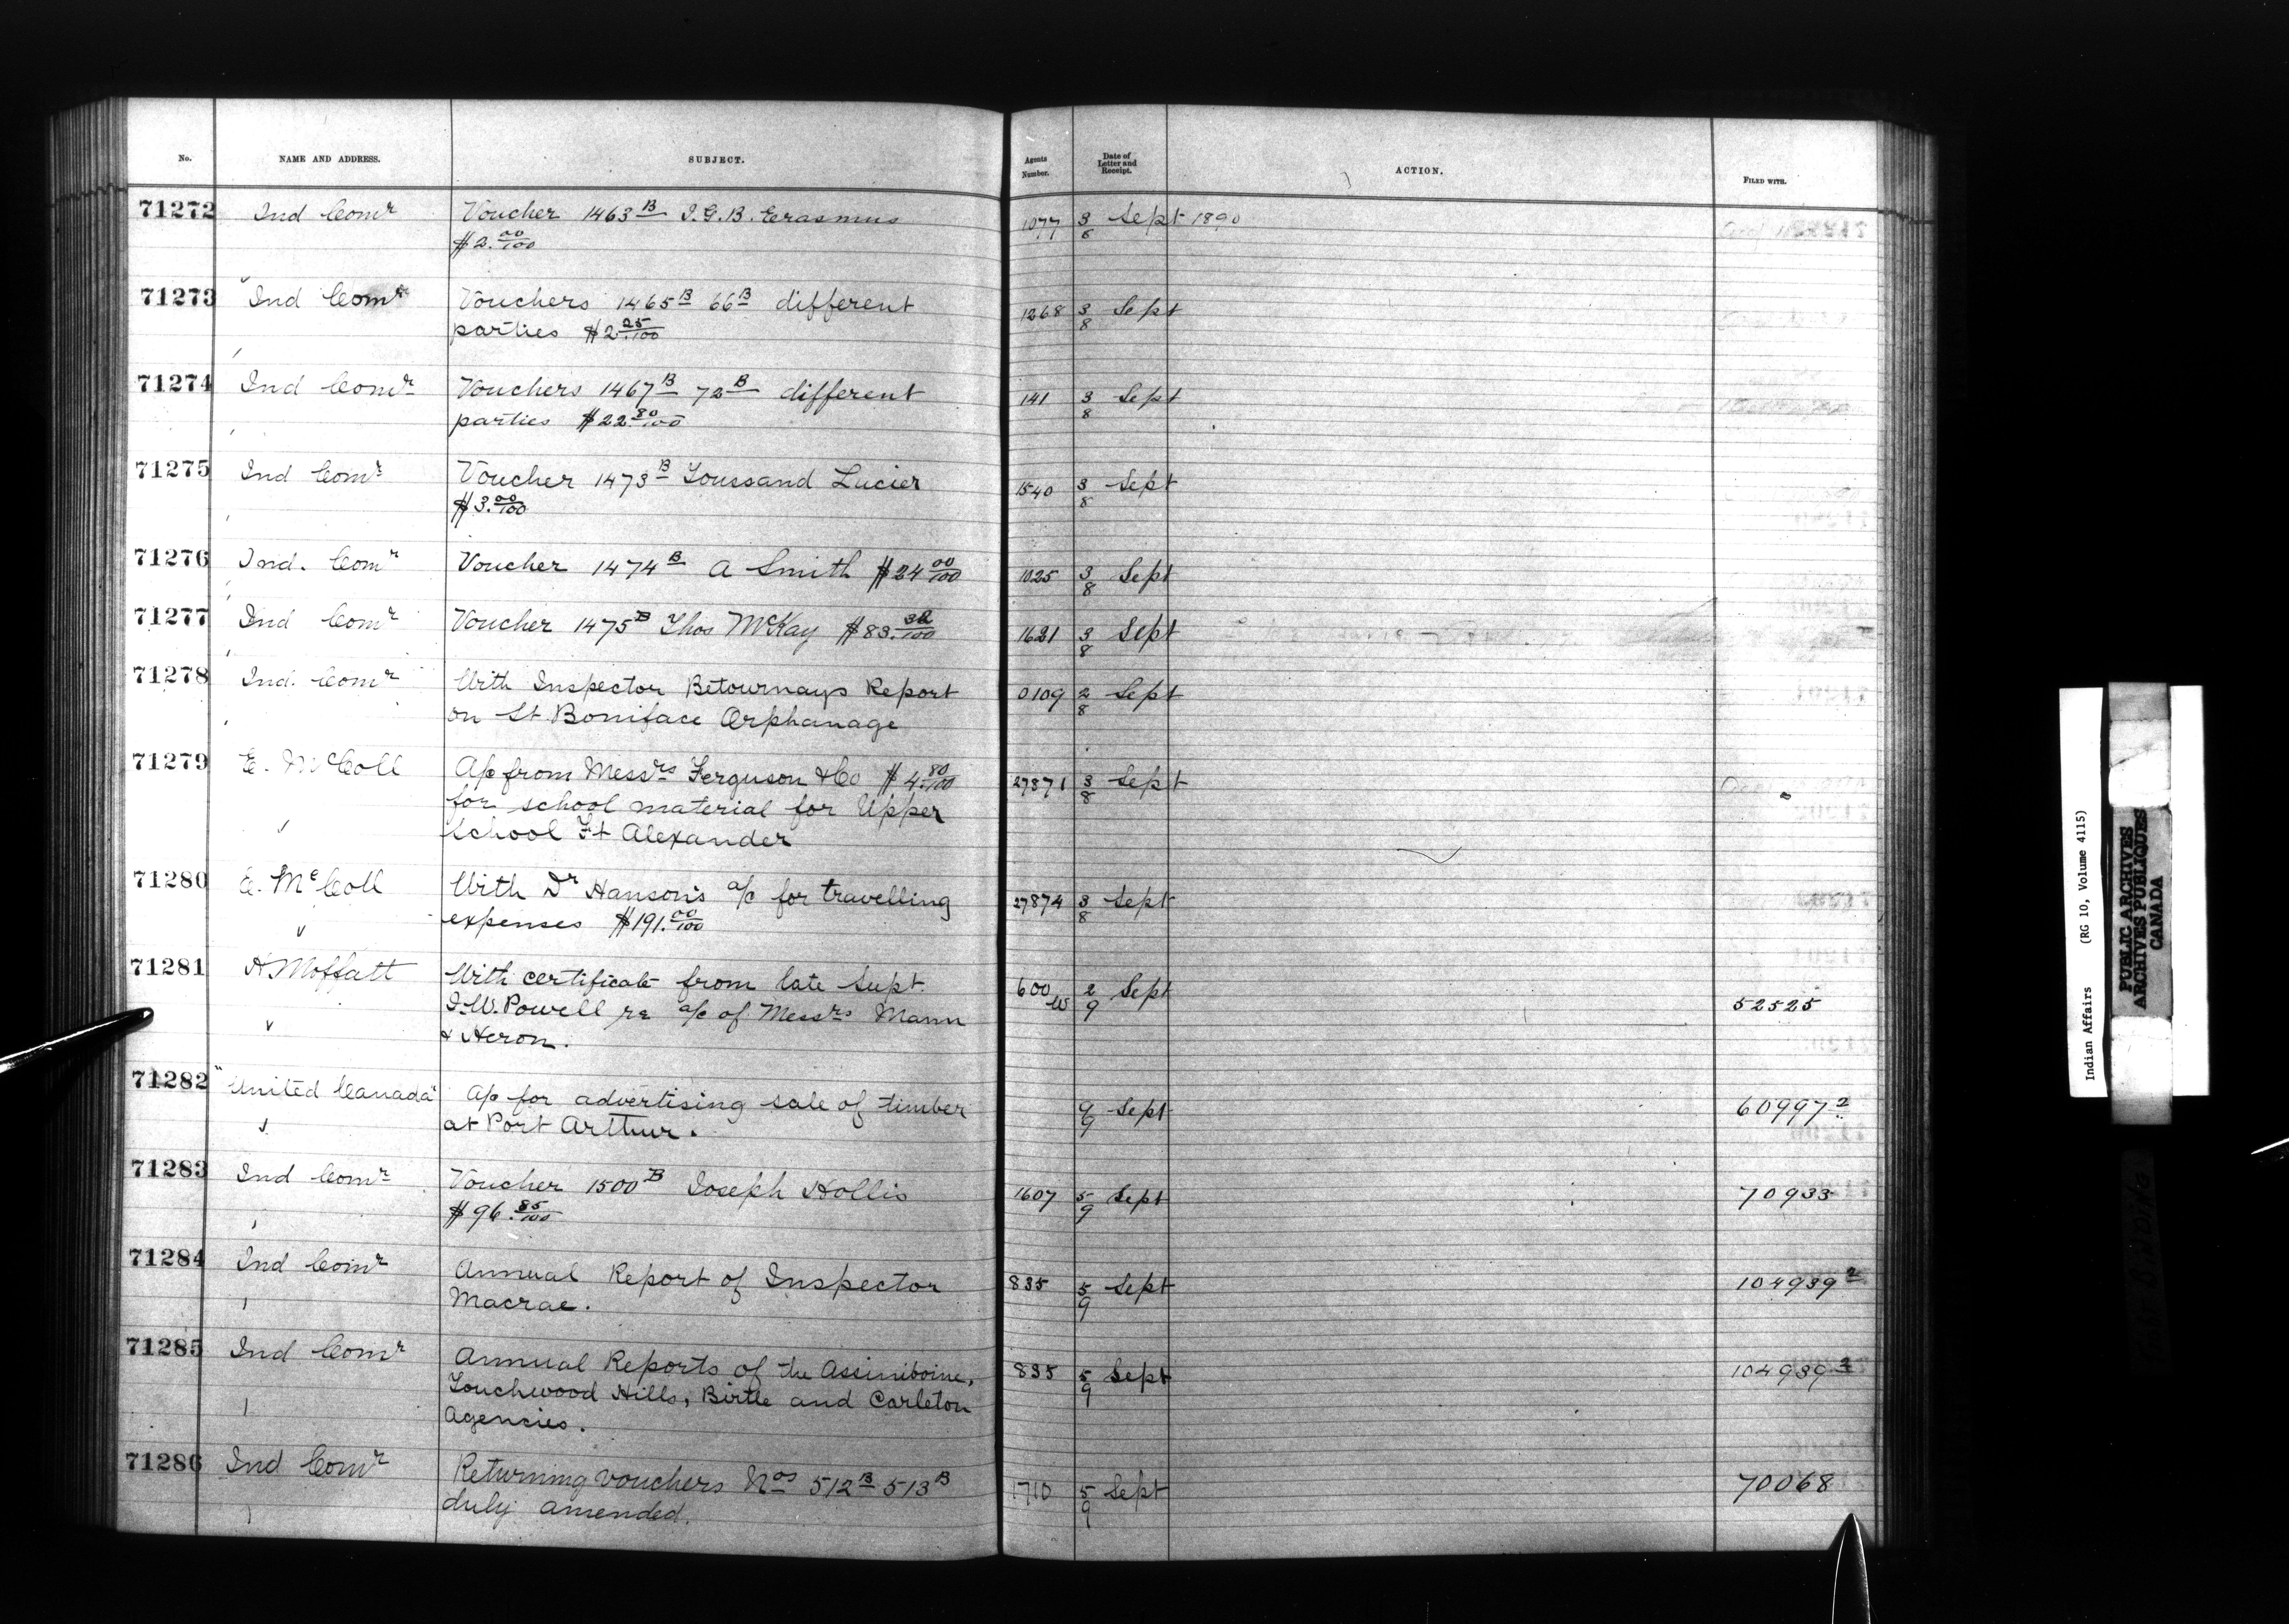 No. NAME AND ADDRESS. SUBJECT. Agents Number. Date of Letter and Receipt. ACTION. FILED WITH.
71272 Ind Comr Voucher 1463B I.G.B. Erasmus 1077 3/8 Sept 1890
$2.00/100
71273 Ind Comr Vouchers 1465B 66B different 1268 3/8 Sept
parties $2.25/100
71274 Ind Comr Vouchers 1467B 72B different 141 3/8 Sept
parties $22.80/100
71275 Ind Comr Voucher 1473B Toussand Lucier 1540 3/8 Sept
$3.00/100
71276 Ind. Comr Voucher 1474B A Smith $24 00/100 1025 3/8 Sept
71277 Ind Comr Voucher 1475B Thos McKay $83.32/100 1621 3/8 Sept
71278 Ind. Comr With Inspector Betournays Report 0109 2/8 Sept
on St Boniface Orphanage
71279 E. McColl A/c from Messrs Ferguson & Co $4.80/100 27871 3/8 Sept
for school material for Upper
School Ft Alexander
71280 E. McColl With Dr Hanson's a/c for travelling 27874 3/8 Sept
expenses $191.00/100
71281 H Moffatt With certificate from late Supt 600 W 2/9 Sept 52525
I.W. Powell re a/c of Messrs Mann
& Heron.
71282 "United Canada" A/c for advertising sale of timber 9/9 Sept 60997 2
at Port Arthur.
71283 Ind Comr Voucher 1500B Joseph Hollis 1607 5/9 Sept 70933
$96.85/100
71284 Ind Comr Annual Report of Inspector 835 5/9 Sept 104939 2
Macrae.
71285 Ind Comr Annual Reports of the Assiniboine, 835 5/9 Sept 104939 2
Touchwood Hills, Birtle and Carleton
Agencies.
71286 Ind Comr Returning vouchers Nos 512B 513B 1710 5/9 Sept 70068
duly amended.
Indian Affairs (RG 10, Volume 4115)
PUBLIC ARCHIVES
ARCHIVES PUBLIQUES
CANADA